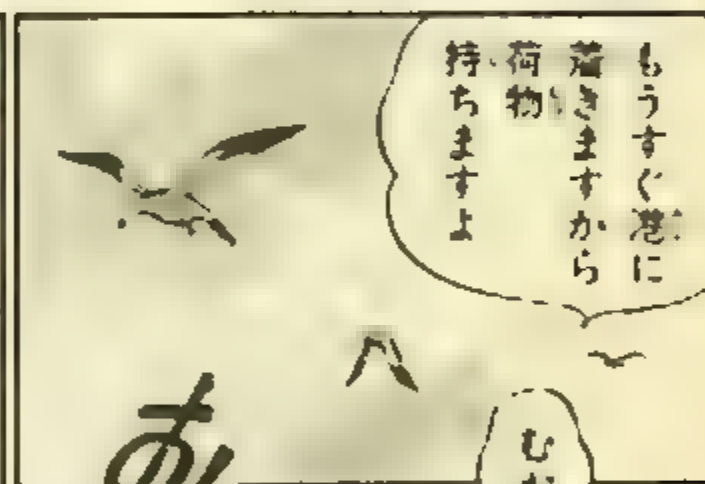 もうすぐ港に
着きますから
荷物
持ちますよ
む
お